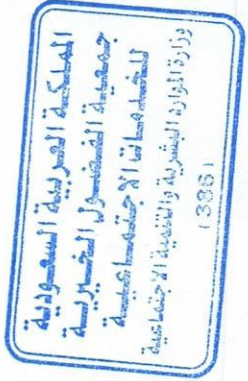 المملكة العربية السعودية
جمعية الفضول الخيرية
للخدمات الاجتماعية
وزارة الموارد البشرية والتنمية الاجتماعية
(3386)